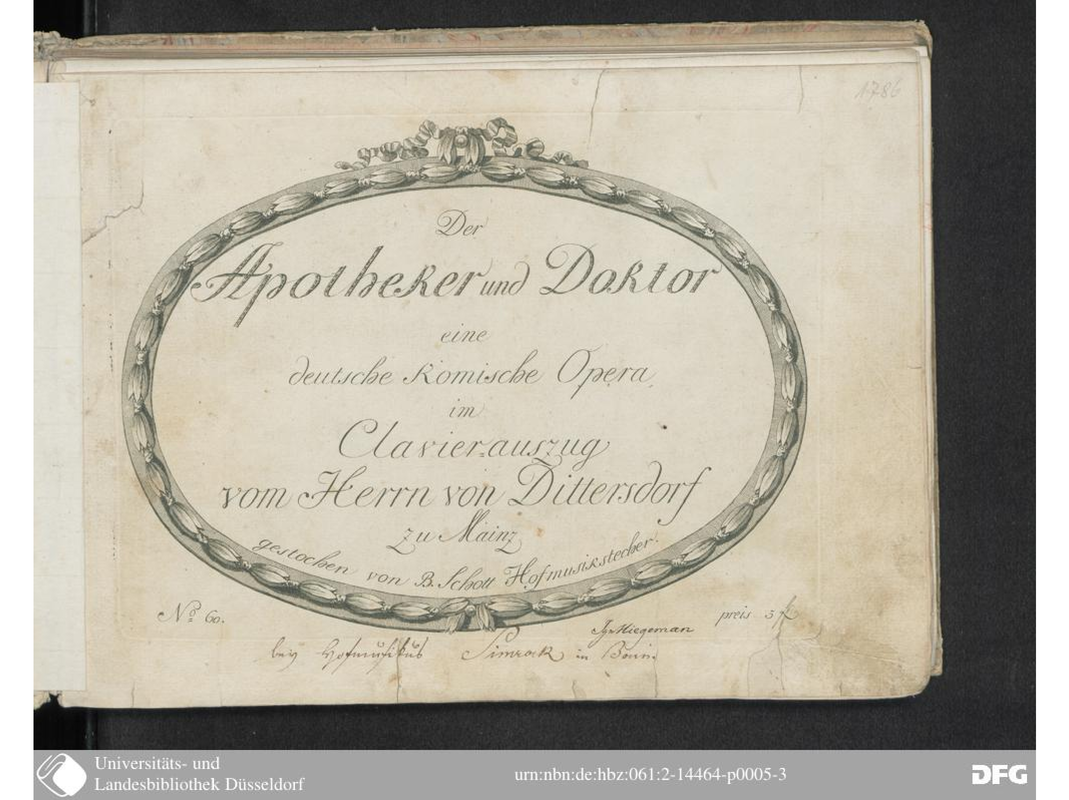 1786
Der
Apotheker und Doktor
eine
deutsche komische Opera
im
Clavier=auszug
vom Herrn von Dittersdorf
zu Mainz
gestochen von B. Schott Hofmusikstecher.
No. 60.
preis 3 f
bey Hofmusikus Simrock in Bonn.
Universitäts- und
Landesbibliothek Düsseldorf
urn:nbn:de:hbz:061:2-14464-p0005-3
DFG